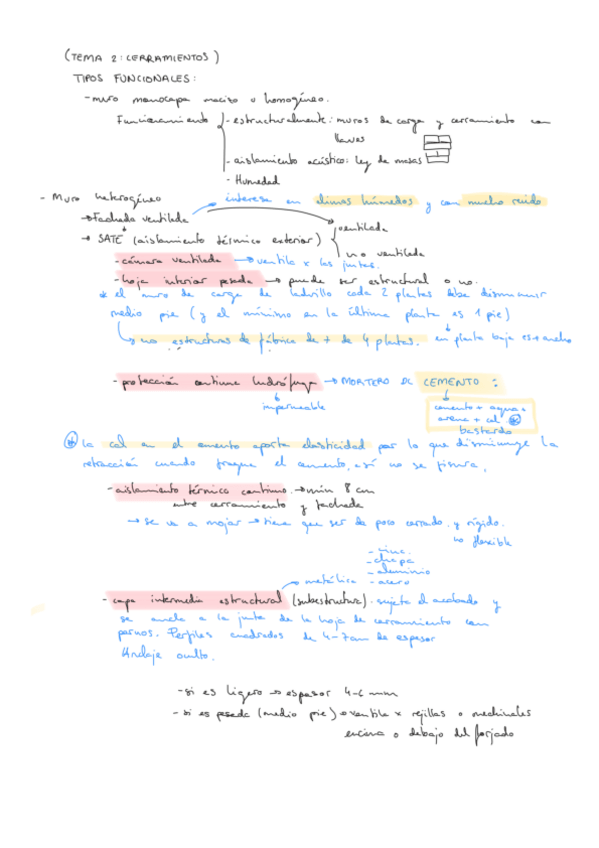 (TEMA 2: CERRAMIENTOS)
TIPOS FUNCIONALES:
- muro monocapa macizo o homogéneo.
Funcionamiento - estructuralmente: muros de carga y cerramiento con
llaves
- aislamiento acústico: ley de masas
- Humedad
- Muro heterogéneo interesa en climas húmedos y con mucho ruido
→ Fachada ventilada ventilada
→ SATE (aislamiento térmico exterior) no ventilada
- cámara ventilada → ventila x las juntas.
- hoja interior pesada → puede ser estructural o no.
* el muro de carga de ladrillo cada 2 plantas debe disminuir
medio pie (y el mínimo en la última planta es 1 pie)
→ no estructuras de fábrica de + de 4 plantas. en planta baja es + ancho
- protección continua hidrófuga → MORTERO DE CEMENTO:
impermeable
cemento + agua +
arena + cal *
bastardo
* la cal en el cemento aporta elasticidad por lo que disminuye la
retracción cuando fragua el cemento, así no se fisura.
- aislamiento térmico continuo. → mín 8 cm
entre cerramiento y fachada
→ se va a mojar → tiene que ser de poro cerrado y rígido.
no flexible
- zinc
- chapa
- aluminio
metálica - acero
- capa intermedia estructural (subestructura). sujeta el acabado y
se ancla a la junta de la hoja de cerramiento con
pernos. Perfiles cuadrados de 4-7cm de espesor
Anclaje oculto.
- si es ligero → espesor 4-6 mm
- si es pesada (medio pie) → ventila x rejillas o mechinales
encima o debajo del forjado